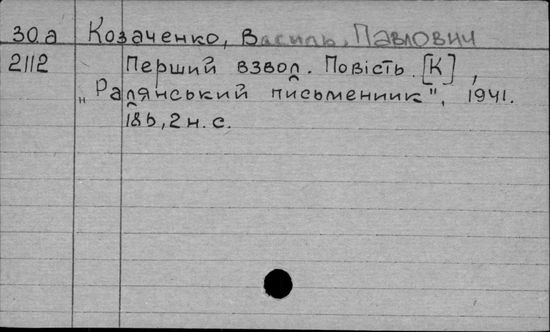 30.а Козаченко, Василь, Павлович
2112 Перший взвод. Повість. [К],
„Радянський письменник", 1941.
186, 2 н. с.